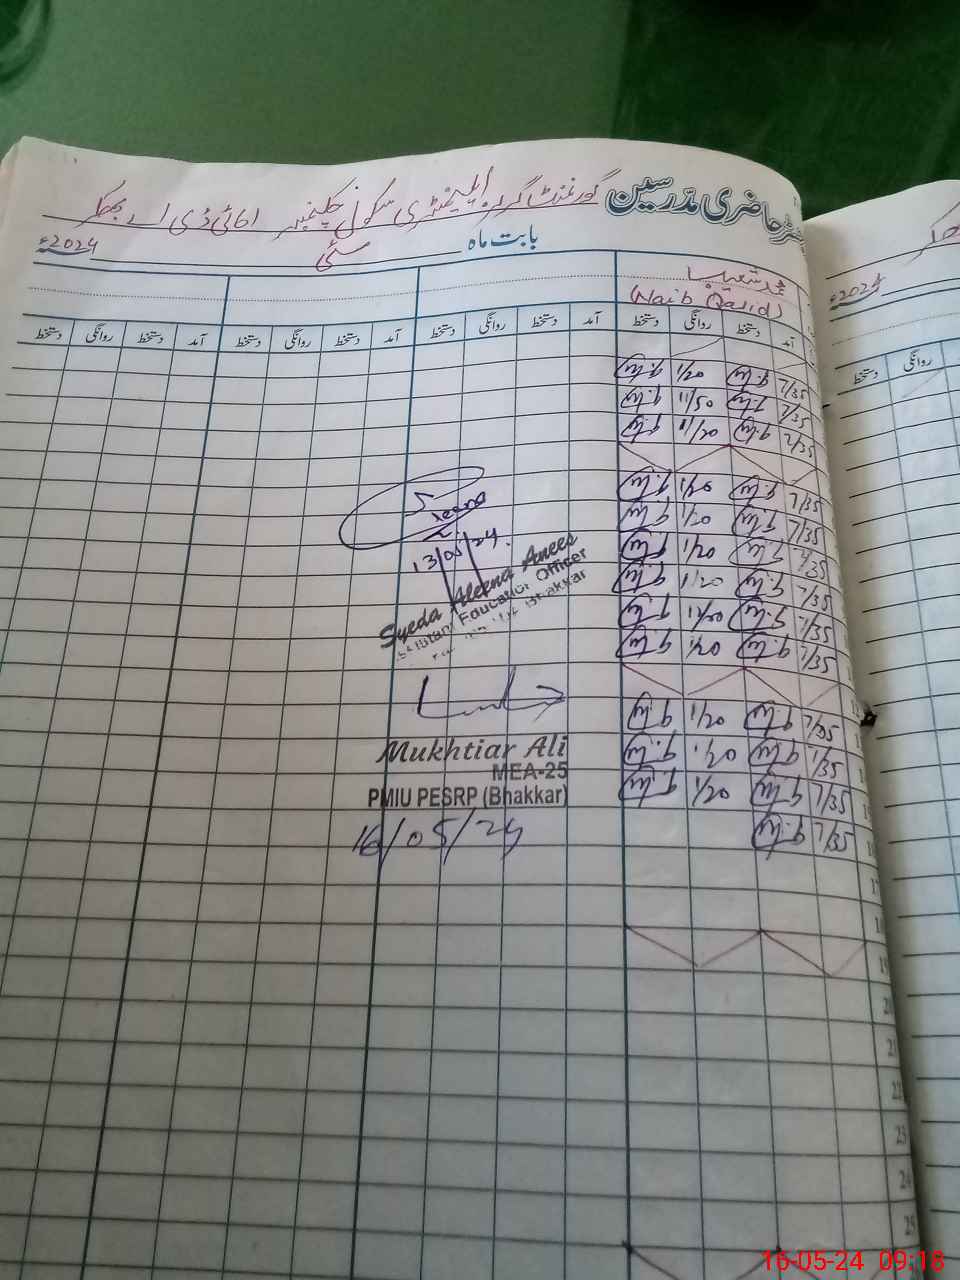 رجسٹر حاضری مدرسین گورنمنٹ گرلز ایلیمنٹری سکول چکنمبر ٹی ڈی اے بھکر
بابت ماہ مئی 2024ء
محمد شعیب
(Naib Qasid)
آمد دستخط روانگی دستخط آمد دستخط روانگی دستخط آمد دستخط روانگی دستخط
7/35 1/20
7/35 11/50
7/35 11/20
7/35 1/20
7/35 1/20
7/35 1/20
7/35 1/20
7/35 11/20
7/35 1/20
7/35 1/20
7/35 1/20
7/35 1/20
16 7/35
17
18
19
20
21
22
23
24
25
13/05/24.
Syeda Aleena Anees
Assistant Education Officer
Bhakkar
Mukhtiar Ali
MEA-25
PMIU PESRP (Bhakkar)
16/05/24
2024ء
روانگی دستخط
16-05-24 09:18